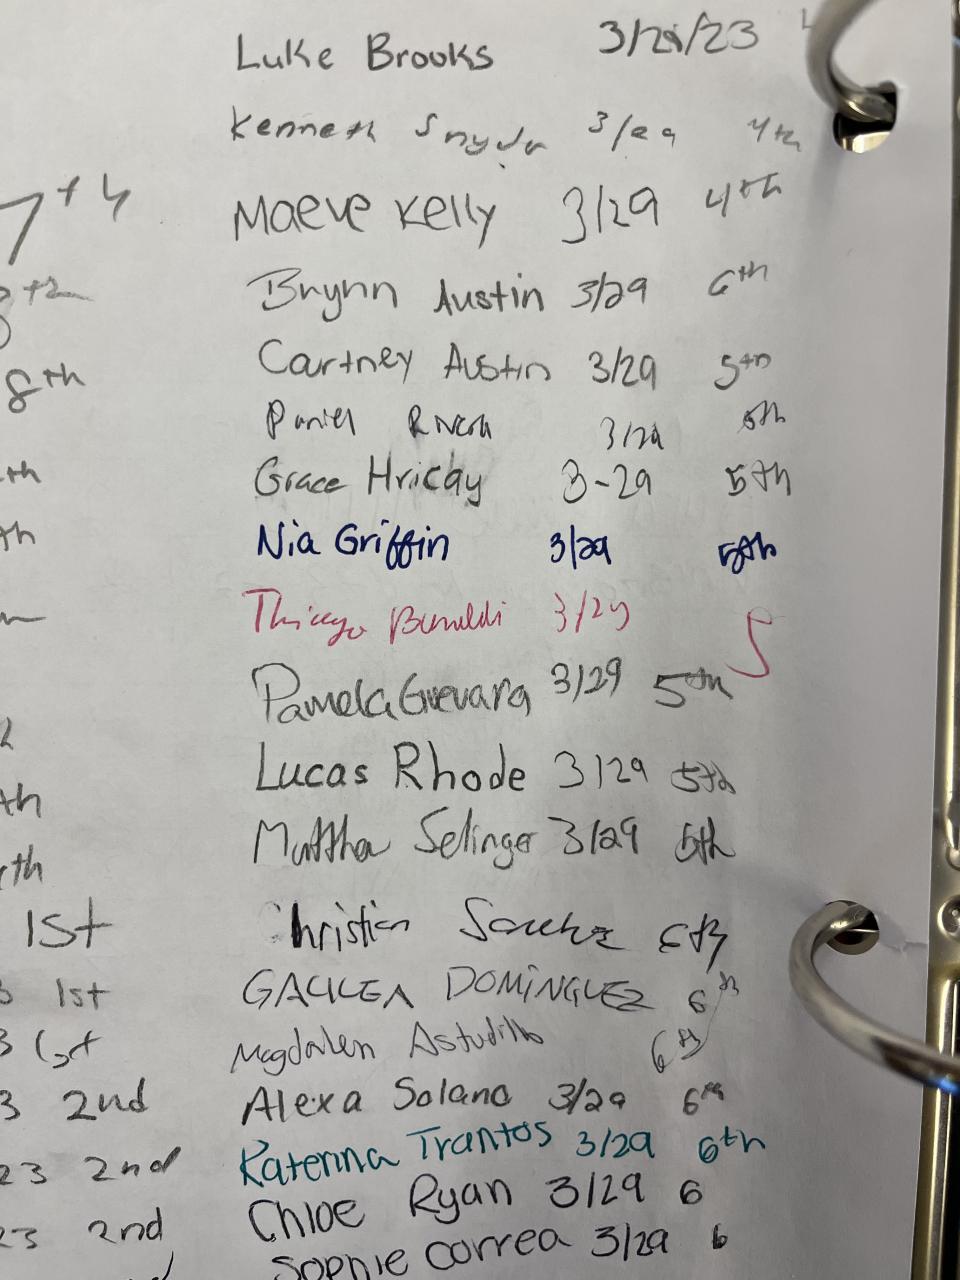 Luke Brooks 3/28/23
Kenneth Snyder 3/29 4th
Maeve Kelly 3/29 4th
Brynn Austin 3/29 6th
Courtney Austin 3/29 5th
Daniel 3/29 5th
Grace Hricay 3-29 5th
Nia Griffin 3/29 5th
Thiago 3/29 5
Pamela Guevara 3/29 5th
Lucas Rhode 3/29 5th
Matthew Selinger 3/29 5th
Christian Sanchez 6th
GALILEA DOMINGUEZ 6th
Magdalen Astudillo 6th
Alexa Solano 3/29 6th
Katerina Trantos 3/29 6th
Chloe Ryan 3/29 6
Sophie Correa 3/29 6
7th
8th
1st
1st
1st
3 2nd
23 2nd
23 2nd